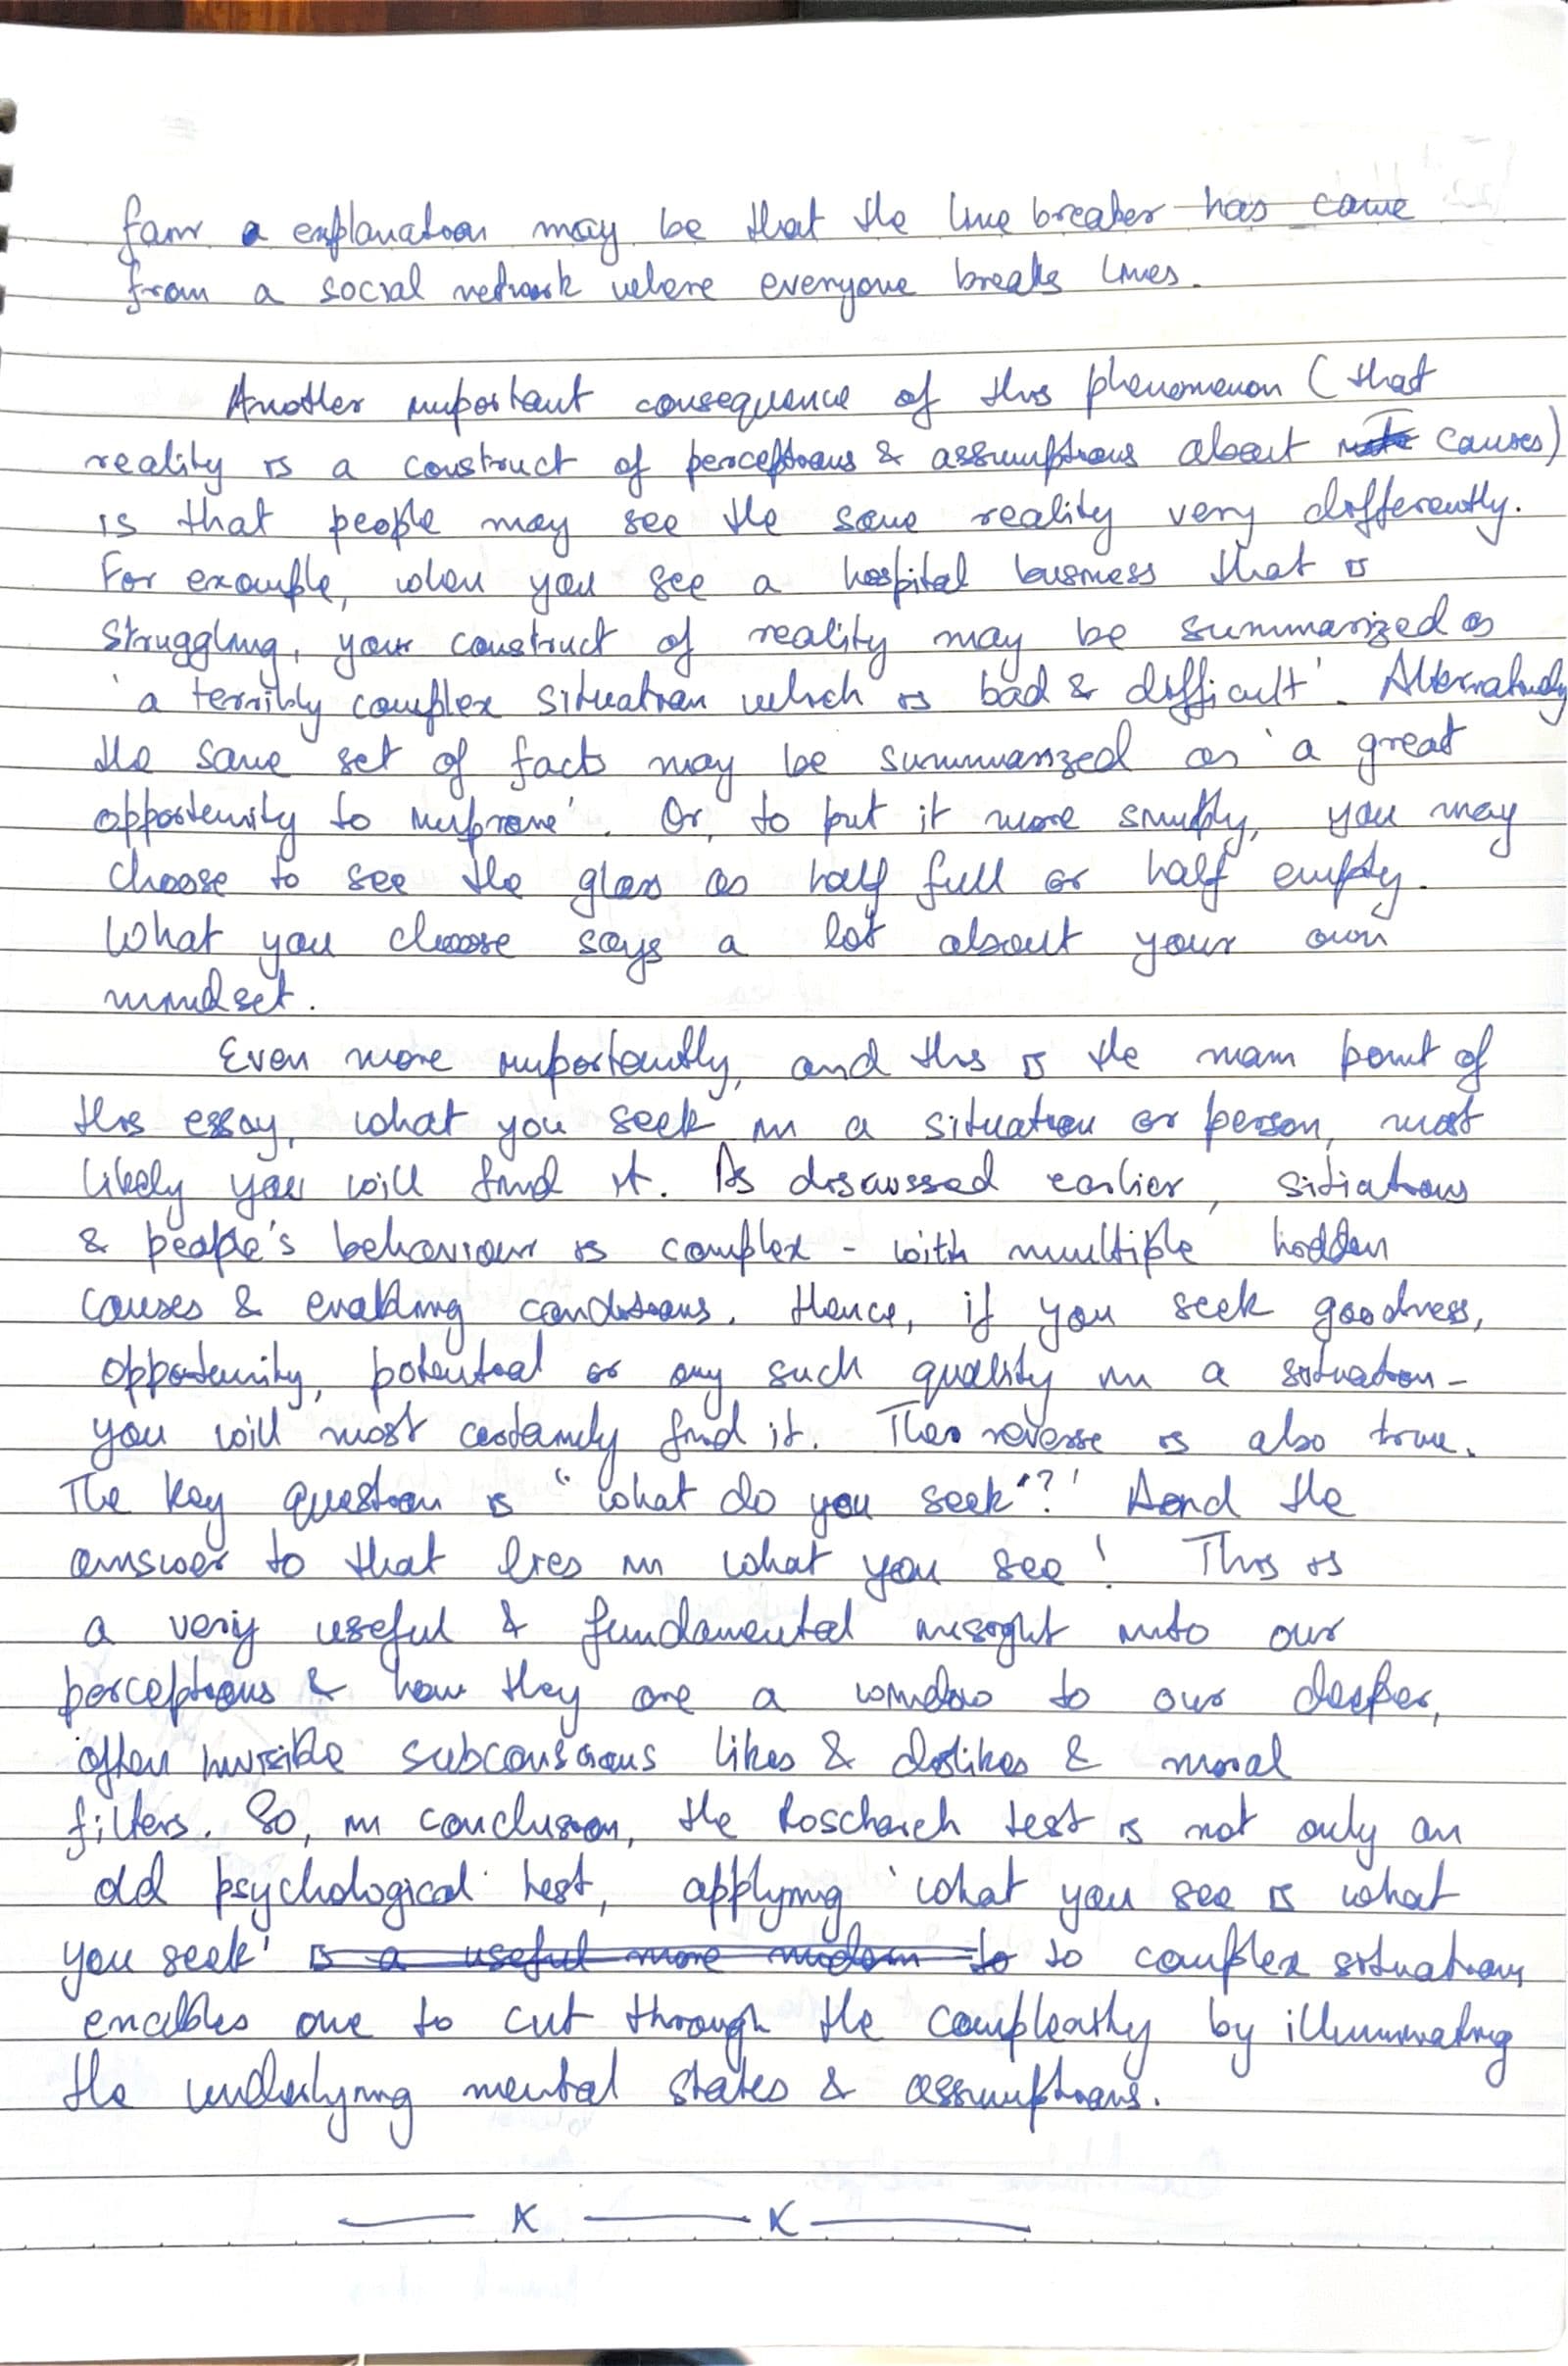 fair a explanation may be that the line breaker has come
from a social network where everyone breaks lines.
Another important consequence of this phenomenon (that
reality is a construct of perceptions & assumptions about causes)
is that people may see the same reality very differently.
For example, when you see a hospital business that is
struggling, your construct of reality may be summarized as
'a terribly complex situation which is bad & difficult'. Alternatively
the same set of facts may be summarized as 'a great
opportunity to improve'. Or, to put it more simply, you may
choose to see the glass as half full or half empty.
What you choose says a lot about your own
mindset.
Even more importantly, and this is the main point of
this essay, what you seek in a situation or person, most
likely you will find it. As discussed earlier, sitiations
& people's behaviour is complex - with multiple hidden
causes & enabling conditions. Hence, if you seek goodness,
opportunity, potential or any such quality in a situation -
you will most certainly find it. The reverse is also true.
The key question is "what do you seek"?' And the
answer to that lies in what you see! This is
a very useful & fundamental insight into our
perceptions & how they are a window to our deeper,
often invisible subconscious likes & dislikes & moral
filters. So, in conclusion, the Roscharch test is not only an
old psychological test, applying 'what you see is what
you seek' is a useful more modern to to complex situations
enables one to cut through the complexity by illuminating
the underlying mental states & assumptions.